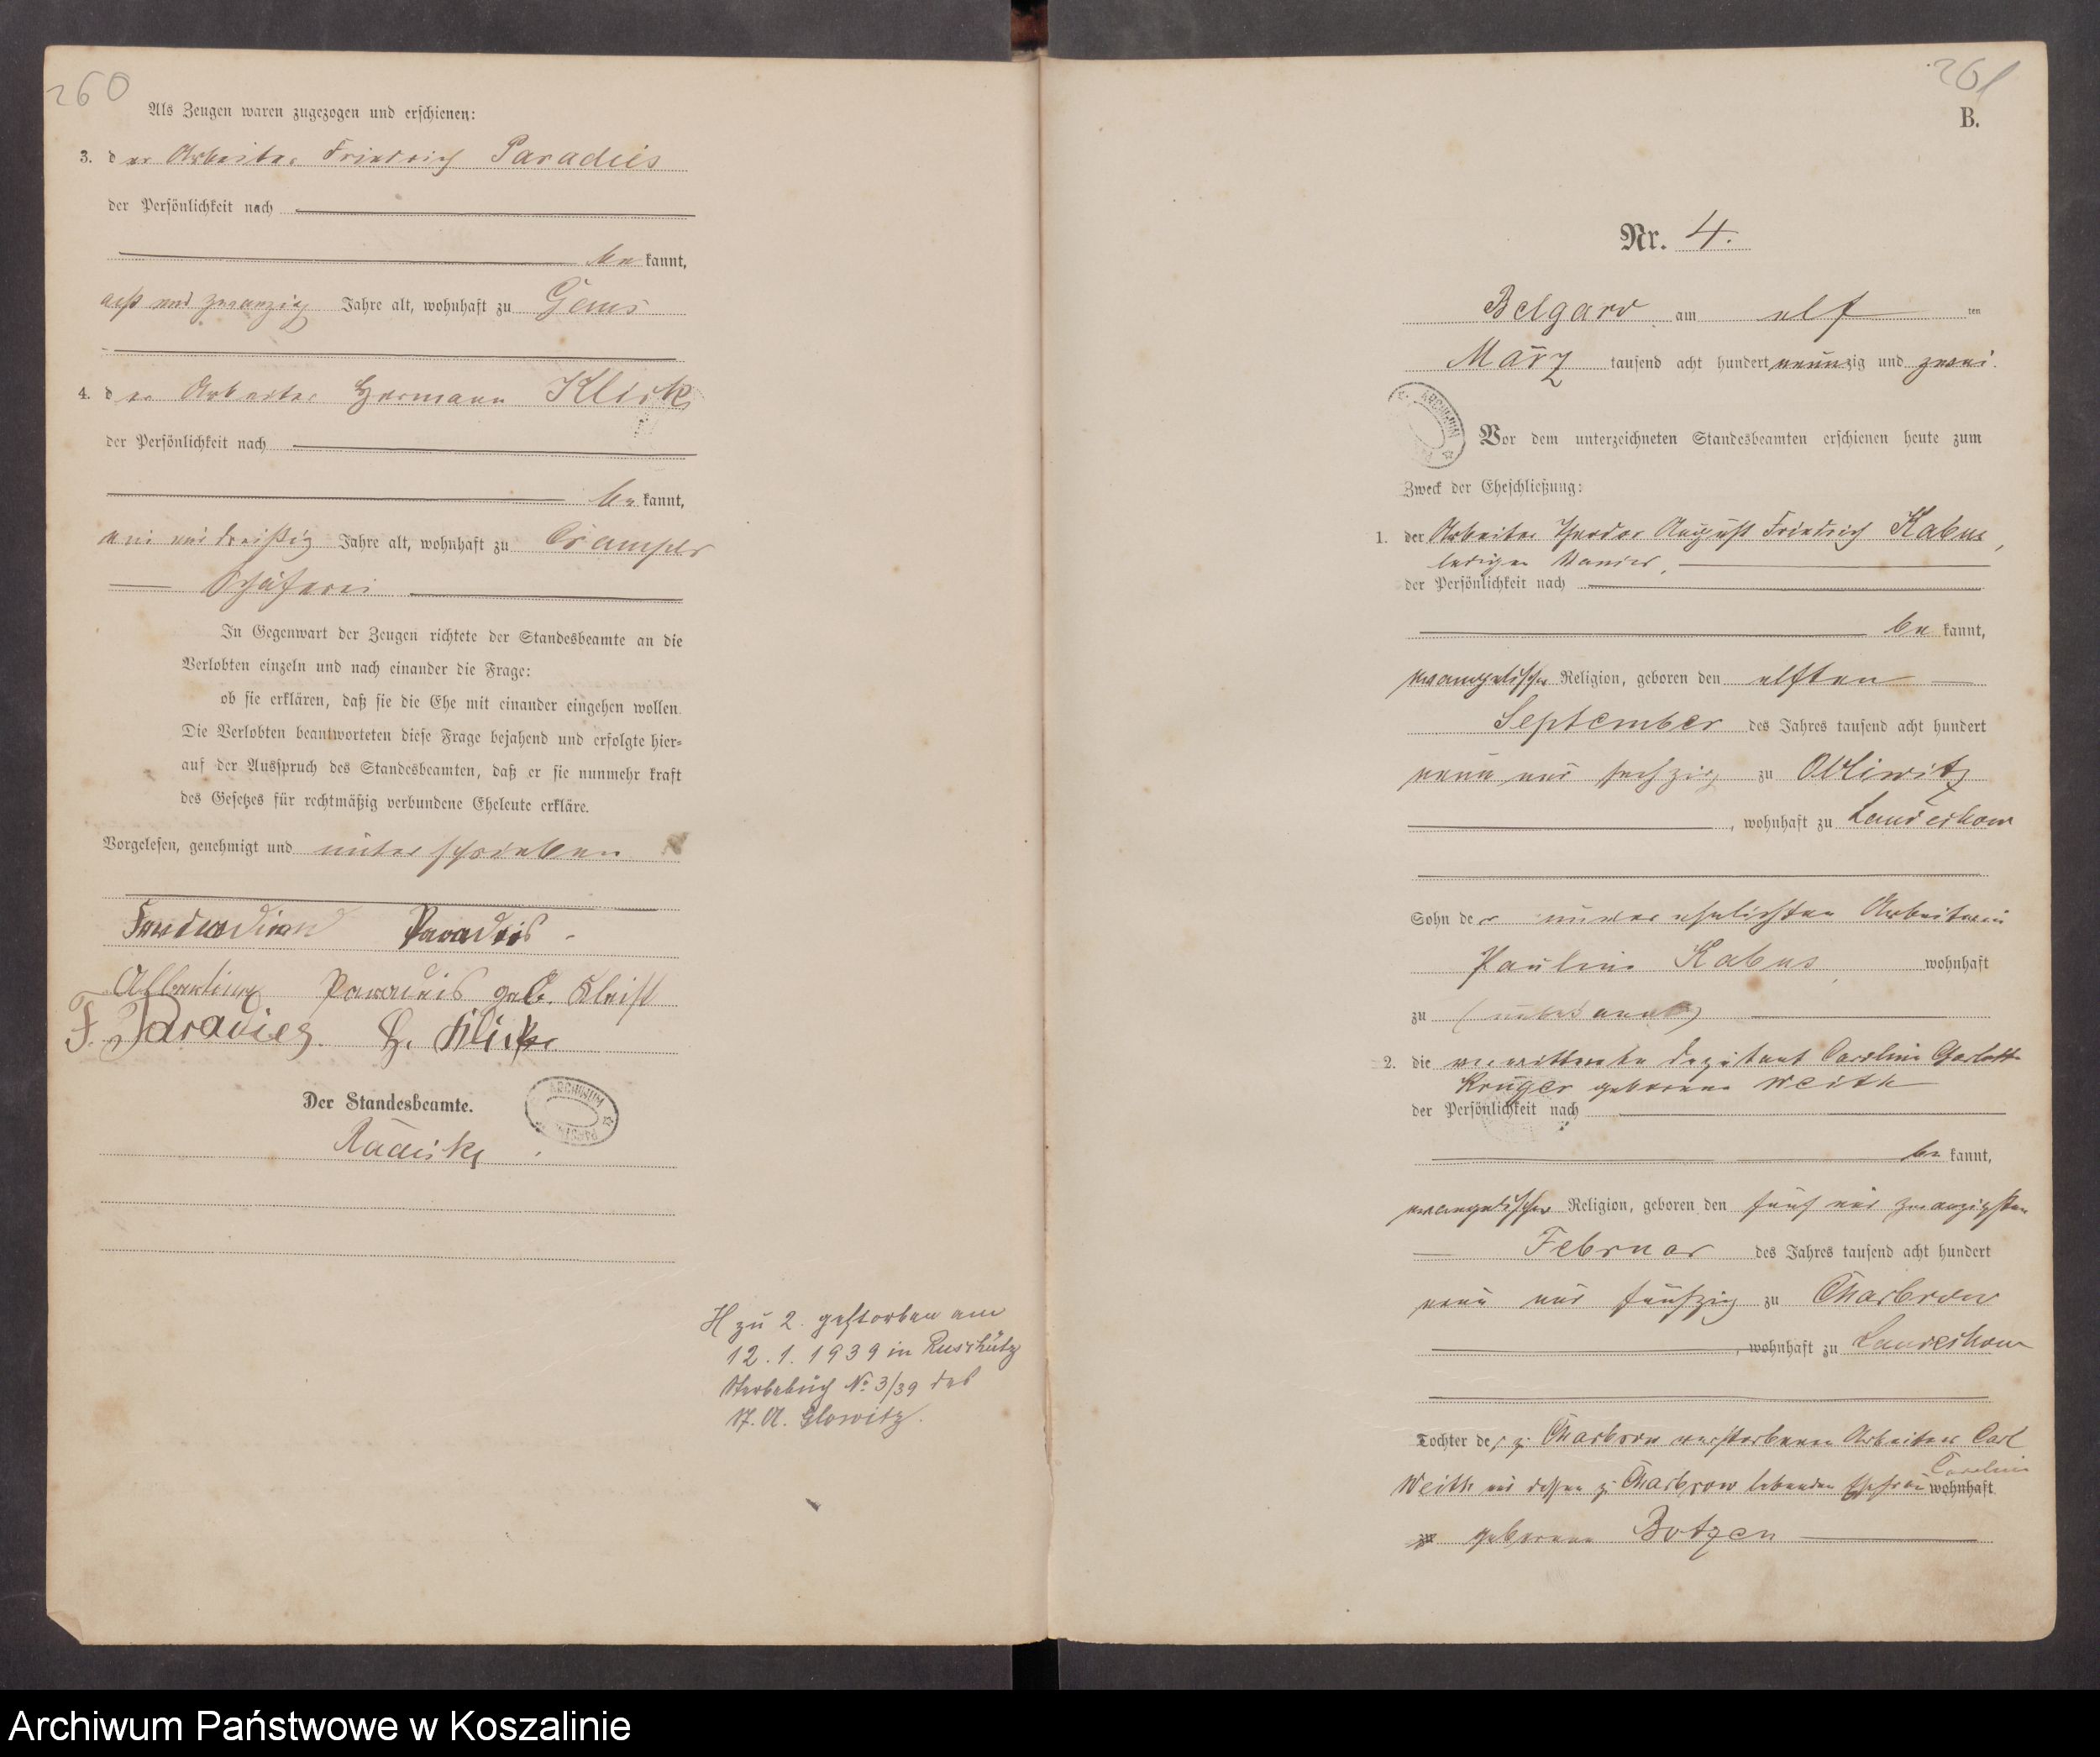 260
Als Zeugen waren zugezogen und erschienen:
3. der Arbeiter Friedrich Paradies
der Persönlichkeit nach
be kannt,
acht und zwanzig Jahre alt, wohnhaft zu Gans
4. der Arbeiter Hermann Klick
der Persönlichkeit nach
be kannt,
ein und dreißig Jahre alt, wohnhaft zu Crampes
Schäferei
In Gegenwart der Zeugen richtete der Standesbeamte an die
Verlobten einzeln und nach einander die Frage:
ob sie erklären, daß sie die Ehe mit einander eingehen wollen.
Die Verlobten beantworteten diese Frage bejahend und erfolgte hier-
auf der Ausspruch des Standesbeamten, daß er sie nunmehr kraft
des Gesetzes für rechtmäßig verbundene Eheleute erkläre.
Vorgelesen, genehmigt und unterschrieben
Ferdinand Paradies
Albertine Paradies geb. Kleist
F. Paradies. H. Klick
Der Standesbeamte.
Radeisky
ARCHIWUM
H zu 2. gestorben am
12. 1. 1939 in Ruschütz
Sterbebuch No 3/39 des
St. A. Glowitz.
261
B.
Nr. 4.
Belgard am elf ten
März tausend acht hundert neunzig und zwei.
ARCHIWUM
Vor dem unterzeichneten Standesbeamten erschienen heute zum
Zweck der Eheschließung:
1. der Arbeiter Theodor August Friedrich Kabus,
ledigen Standes,
der Persönlichkeit nach
be kannt,
evangelischer Religion, geboren den elften
September des Jahres tausend acht hundert
neun und sechzig zu Obliwitz
, wohnhaft zu Landechow
Sohn der unverehelichten Arbeiterin
Pauline Kabus, wohnhaft
zu (unbekannt)
2. die verwittwete Deputant Caroline Charlotte
Krüger geborene Weith
der Persönlichkeit nach
be kannt,
evangelischer Religion, geboren den fünf und zwanzigsten
Februar des Jahres tausend acht hundert
neun und fünfzig zu Charbrow
, wohnhaft zu Landechow
Tochter des z. Charbrow verstorbenen Arbeiters Carl
Weith und dessen z. Charbrow lebenden Ehefrau Caroline wohnhaft
zu geborene Botzen
Archiwum Państwowe w Koszalinie